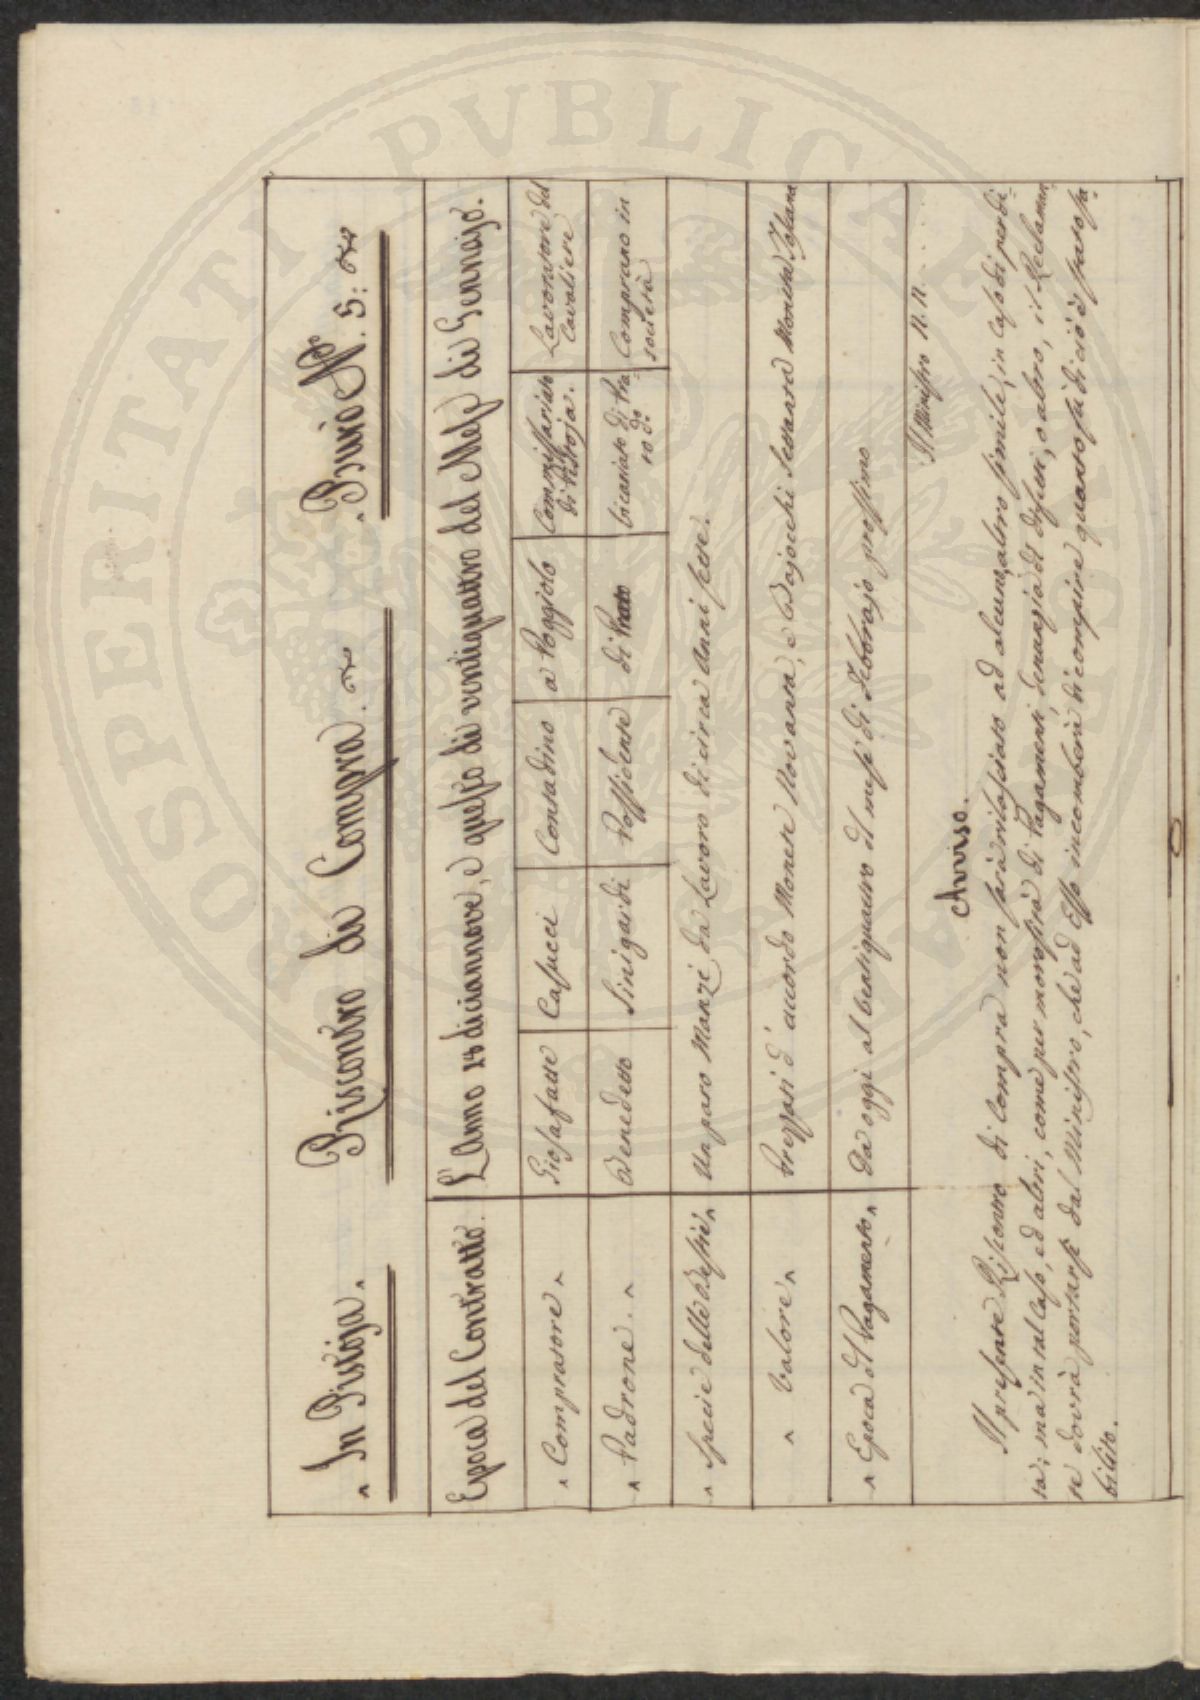 In Pistoja. Riscontro di Compra. Bujo N.o 5:
Epoca del Contratto. L'Anno 18 diciannove, e questo dì ventiquattro del Mese di Gennajo.
Compratore Giosafatte Casucci Contadino a Poggiolo Commissariato di Pistoja. Lavoratore del Cavaliere
Padrone. Benedetto Sinigardi Possidente di Prato Vicariato di Prato do. Comprano in società
Specie delle Bestie Un paro Manzi da Lavoro di circa Anni sette.
Valore Prezzati d'accordo Monete Novanta, e Bajocchi Sessanta Moneta Toscana
Epoca del Pagamento Da oggi al ventiquattro del mese di Febbrajo prossimo
Il Ministro N.N.
Avviso.
Il presente Riscontro di Compra non sarà rilasciato ad alcun altro simile, in caso di perdi-
ta; ma in tal caso, ed altri, come per morosità di Pagamenti, denunzia di difetti, o altro, il Reclaman-
te dovrà portarsi dal Ministro, che ad Esso incomberà di compire quanto fa di ciò è stato sta-
bilito.